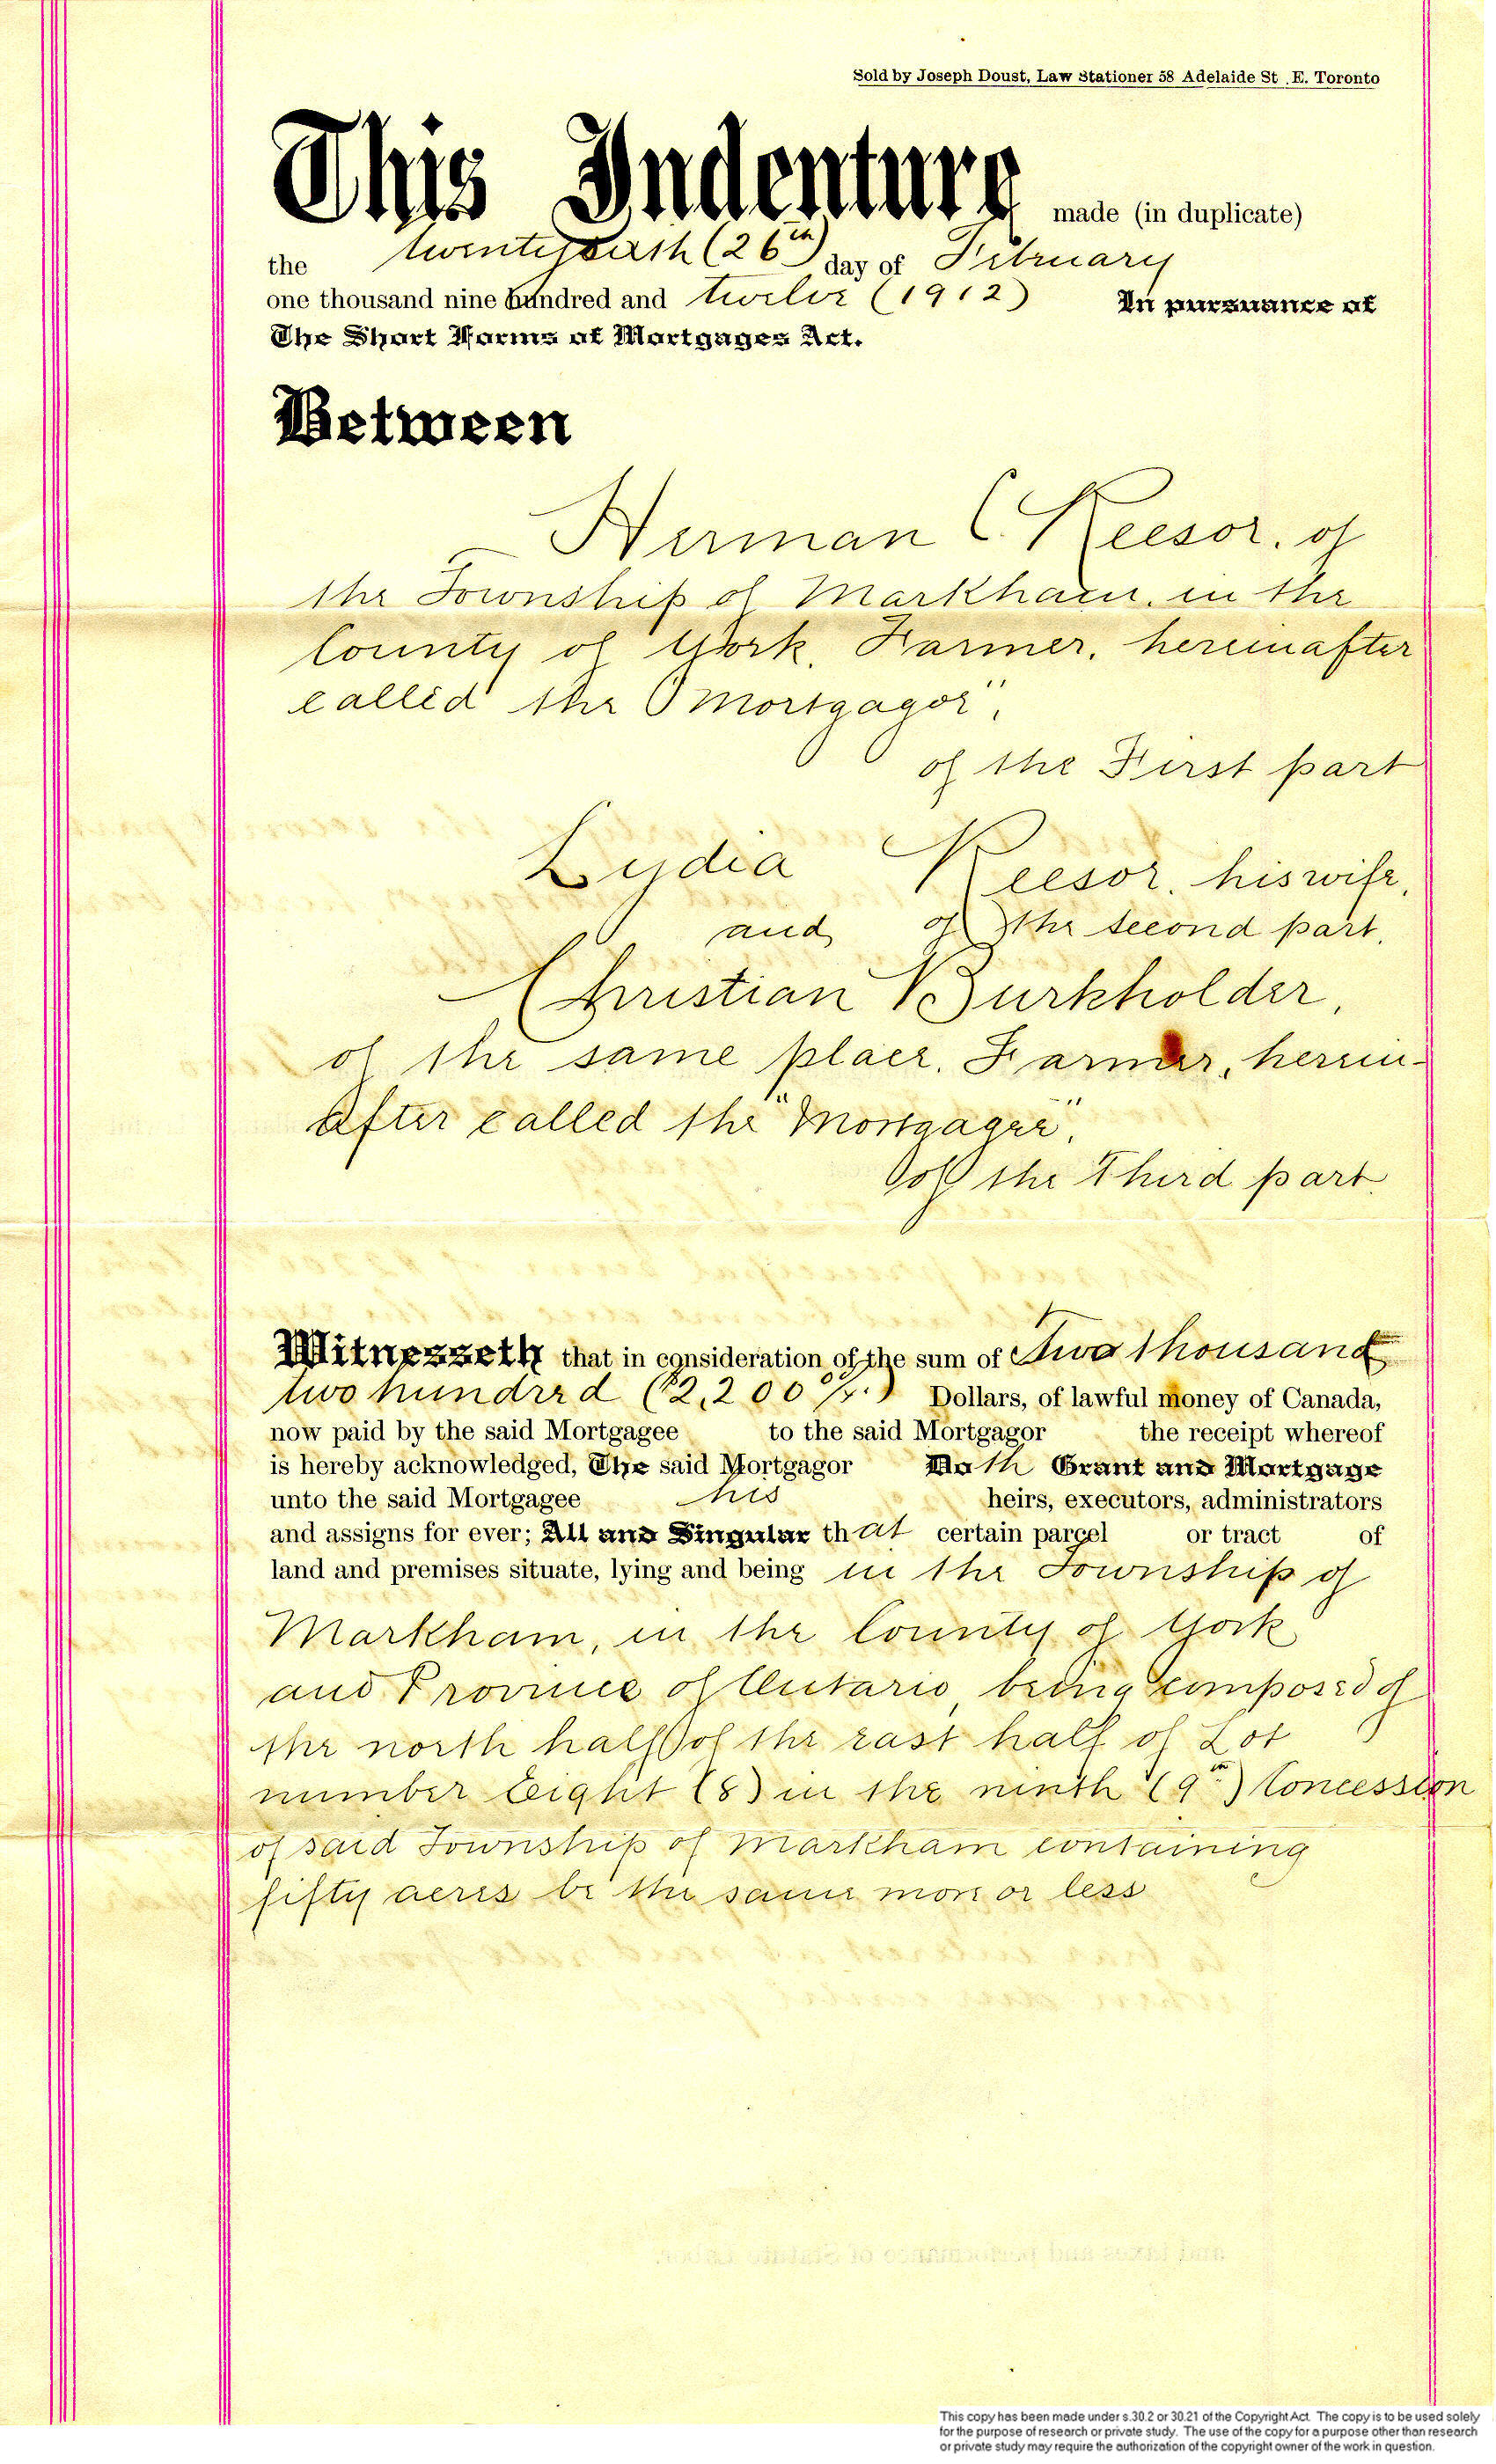 Sold by Joseph Doust, Law Stationer 58 Adelaide St. E. Toronto
This Indenture made (in duplicate)
the twenty sixth (26th) day of February
one thousand nine hundred and twelve (1912) In pursuance of
The Short Forms of Mortgages Act.
Between
Herman C. Reesor, of
the Township of Markham, in the
County of York, Farmer, hereinafter
called the "Mortgagor",
of the First part
Lydia Reesor, his wife,
and of the second part,
Christian Burkholder,
of the same place, Farmer, herein-
after called the "Mortgagee",
of the Third part.
Witnesseth that in consideration of the sum of Two thousand
two hundred ($2,200 00/xx.) Dollars, of lawful money of Canada,
now paid by the said Mortgagee to the said Mortgagor the receipt whereof
is hereby acknowledged, The said Mortgagor Doth Grant and Mortgage
unto the said Mortgagee his heirs, executors, administrators
and assigns for ever; All and Singular that certain parcel or tract of
land and premises situate, lying and being in the Township of
Markham, in the County of York
and Province of Ontario being composed of
the north half of the east half of Lot
number Eight (8) in the ninth (9th) Concession
of said Township of Markham containing
fifty acres be the same more or less
This copy has been made under s.30.2 or 30.21 of the Copyright Act. The copy is to be used solely
for the purpose of research or private study. The use of the copy for a purpose other than research
or private study may require the authorization of the copyright owner of the work in question.